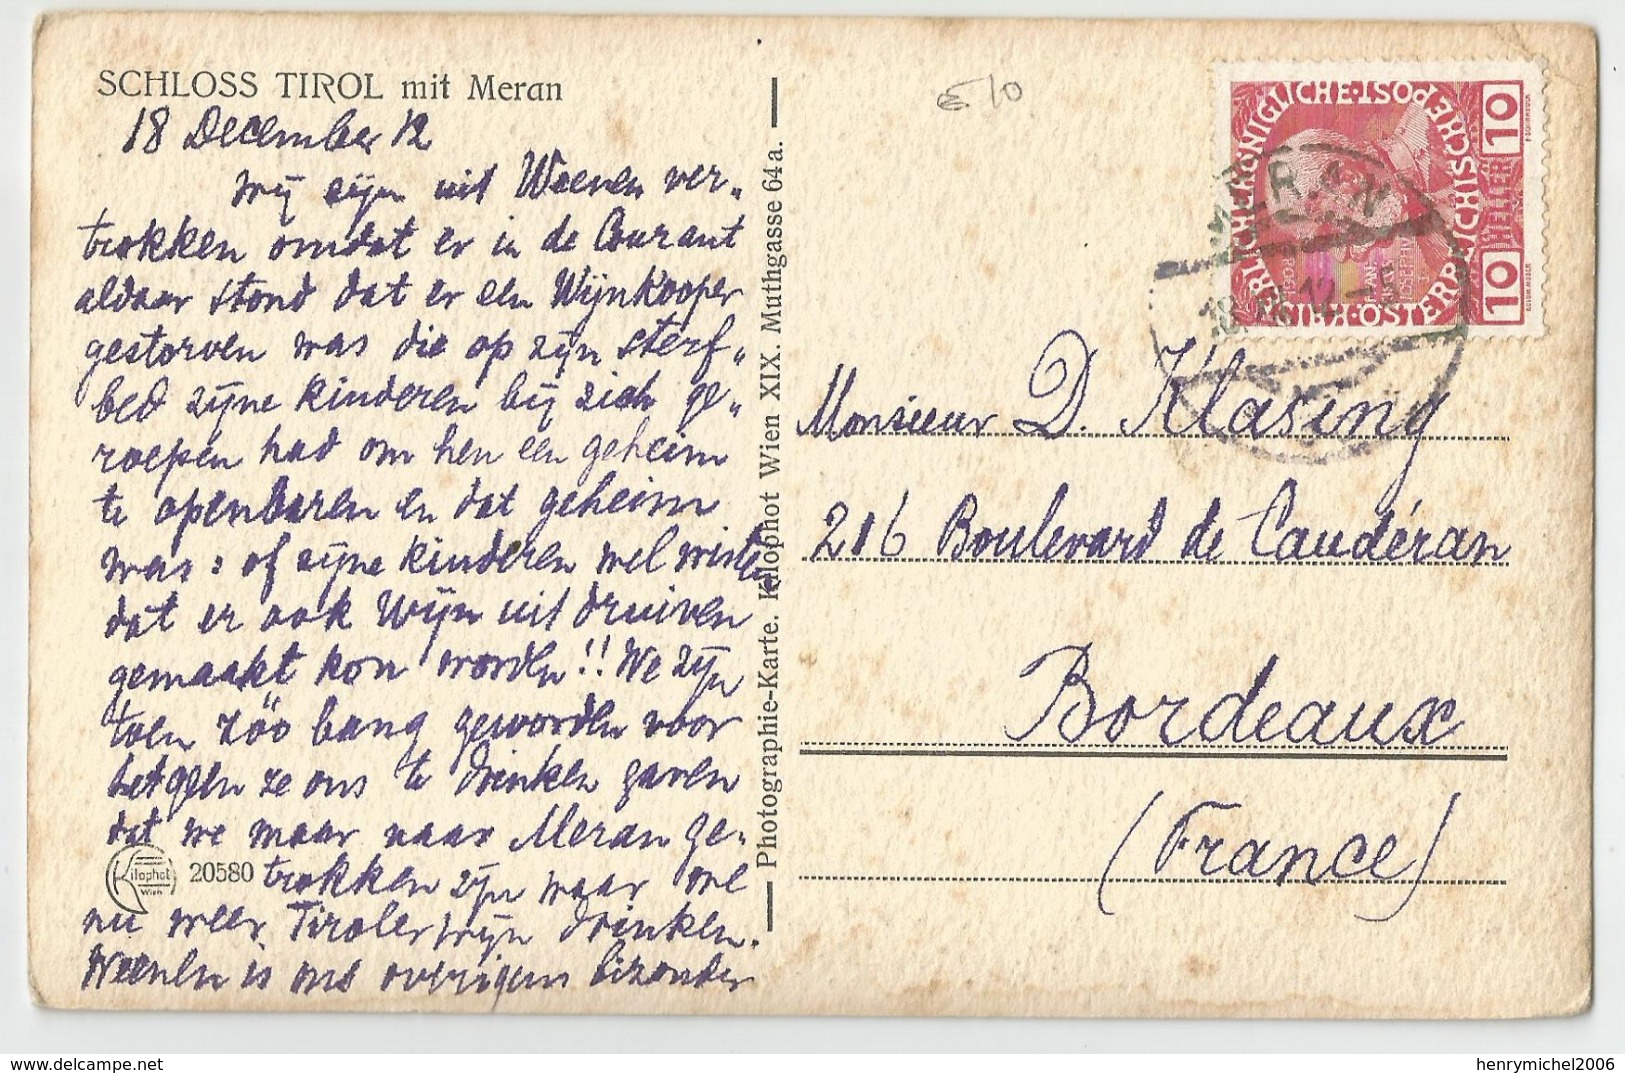 SCHLOSS TIROL mit Meran
18 December 12
Wij zijn uit Weenen ver„
trokken omdat er in de Courant
aldaar stond dat er een Wijnkooper
gestorven was die op zijn sterf„
bed zijne kinderen bij zich ge„
roepen had om hen een geheim
te openbaren en dat geheim
was: of zijne kinderen wel wisten
dat er ook Wijn uit druiven
gemaakt kon worden!! We zijn
toen zóó bang geworden voor
hetgeen ze ons te drinken gaven
dat we maar naar Meran ge-
trokken zijn waar we
nu weer Tiroler wijn drinken.
Weenen is ons overigens bizonder
Kilophot
Wien
20580
Photographie-Karte. Kilophot Wien XIX. Muthgasse 64a.
€ 10
10 HELLER 10
MERAN
18 XII 12-5
Monsieur D. Klasing
216 Boulevard de Caudéran
Bordeaux
(France)
delcampe.net
henrymichel2006